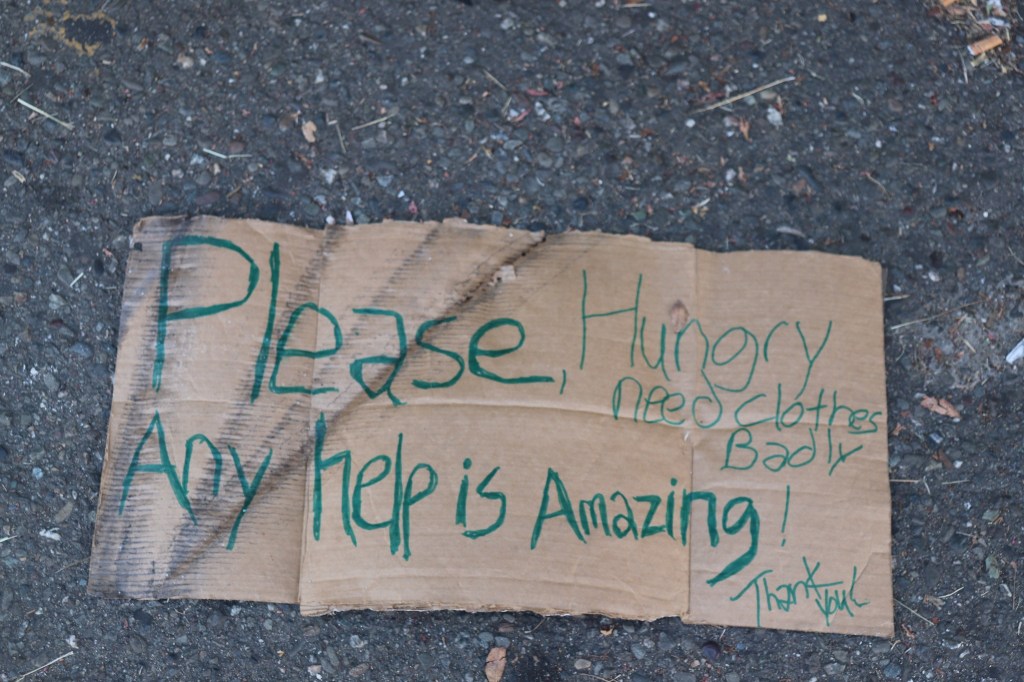 Please, Hungry
need clothes
Badly
Any help is Amazing!
Thank you!